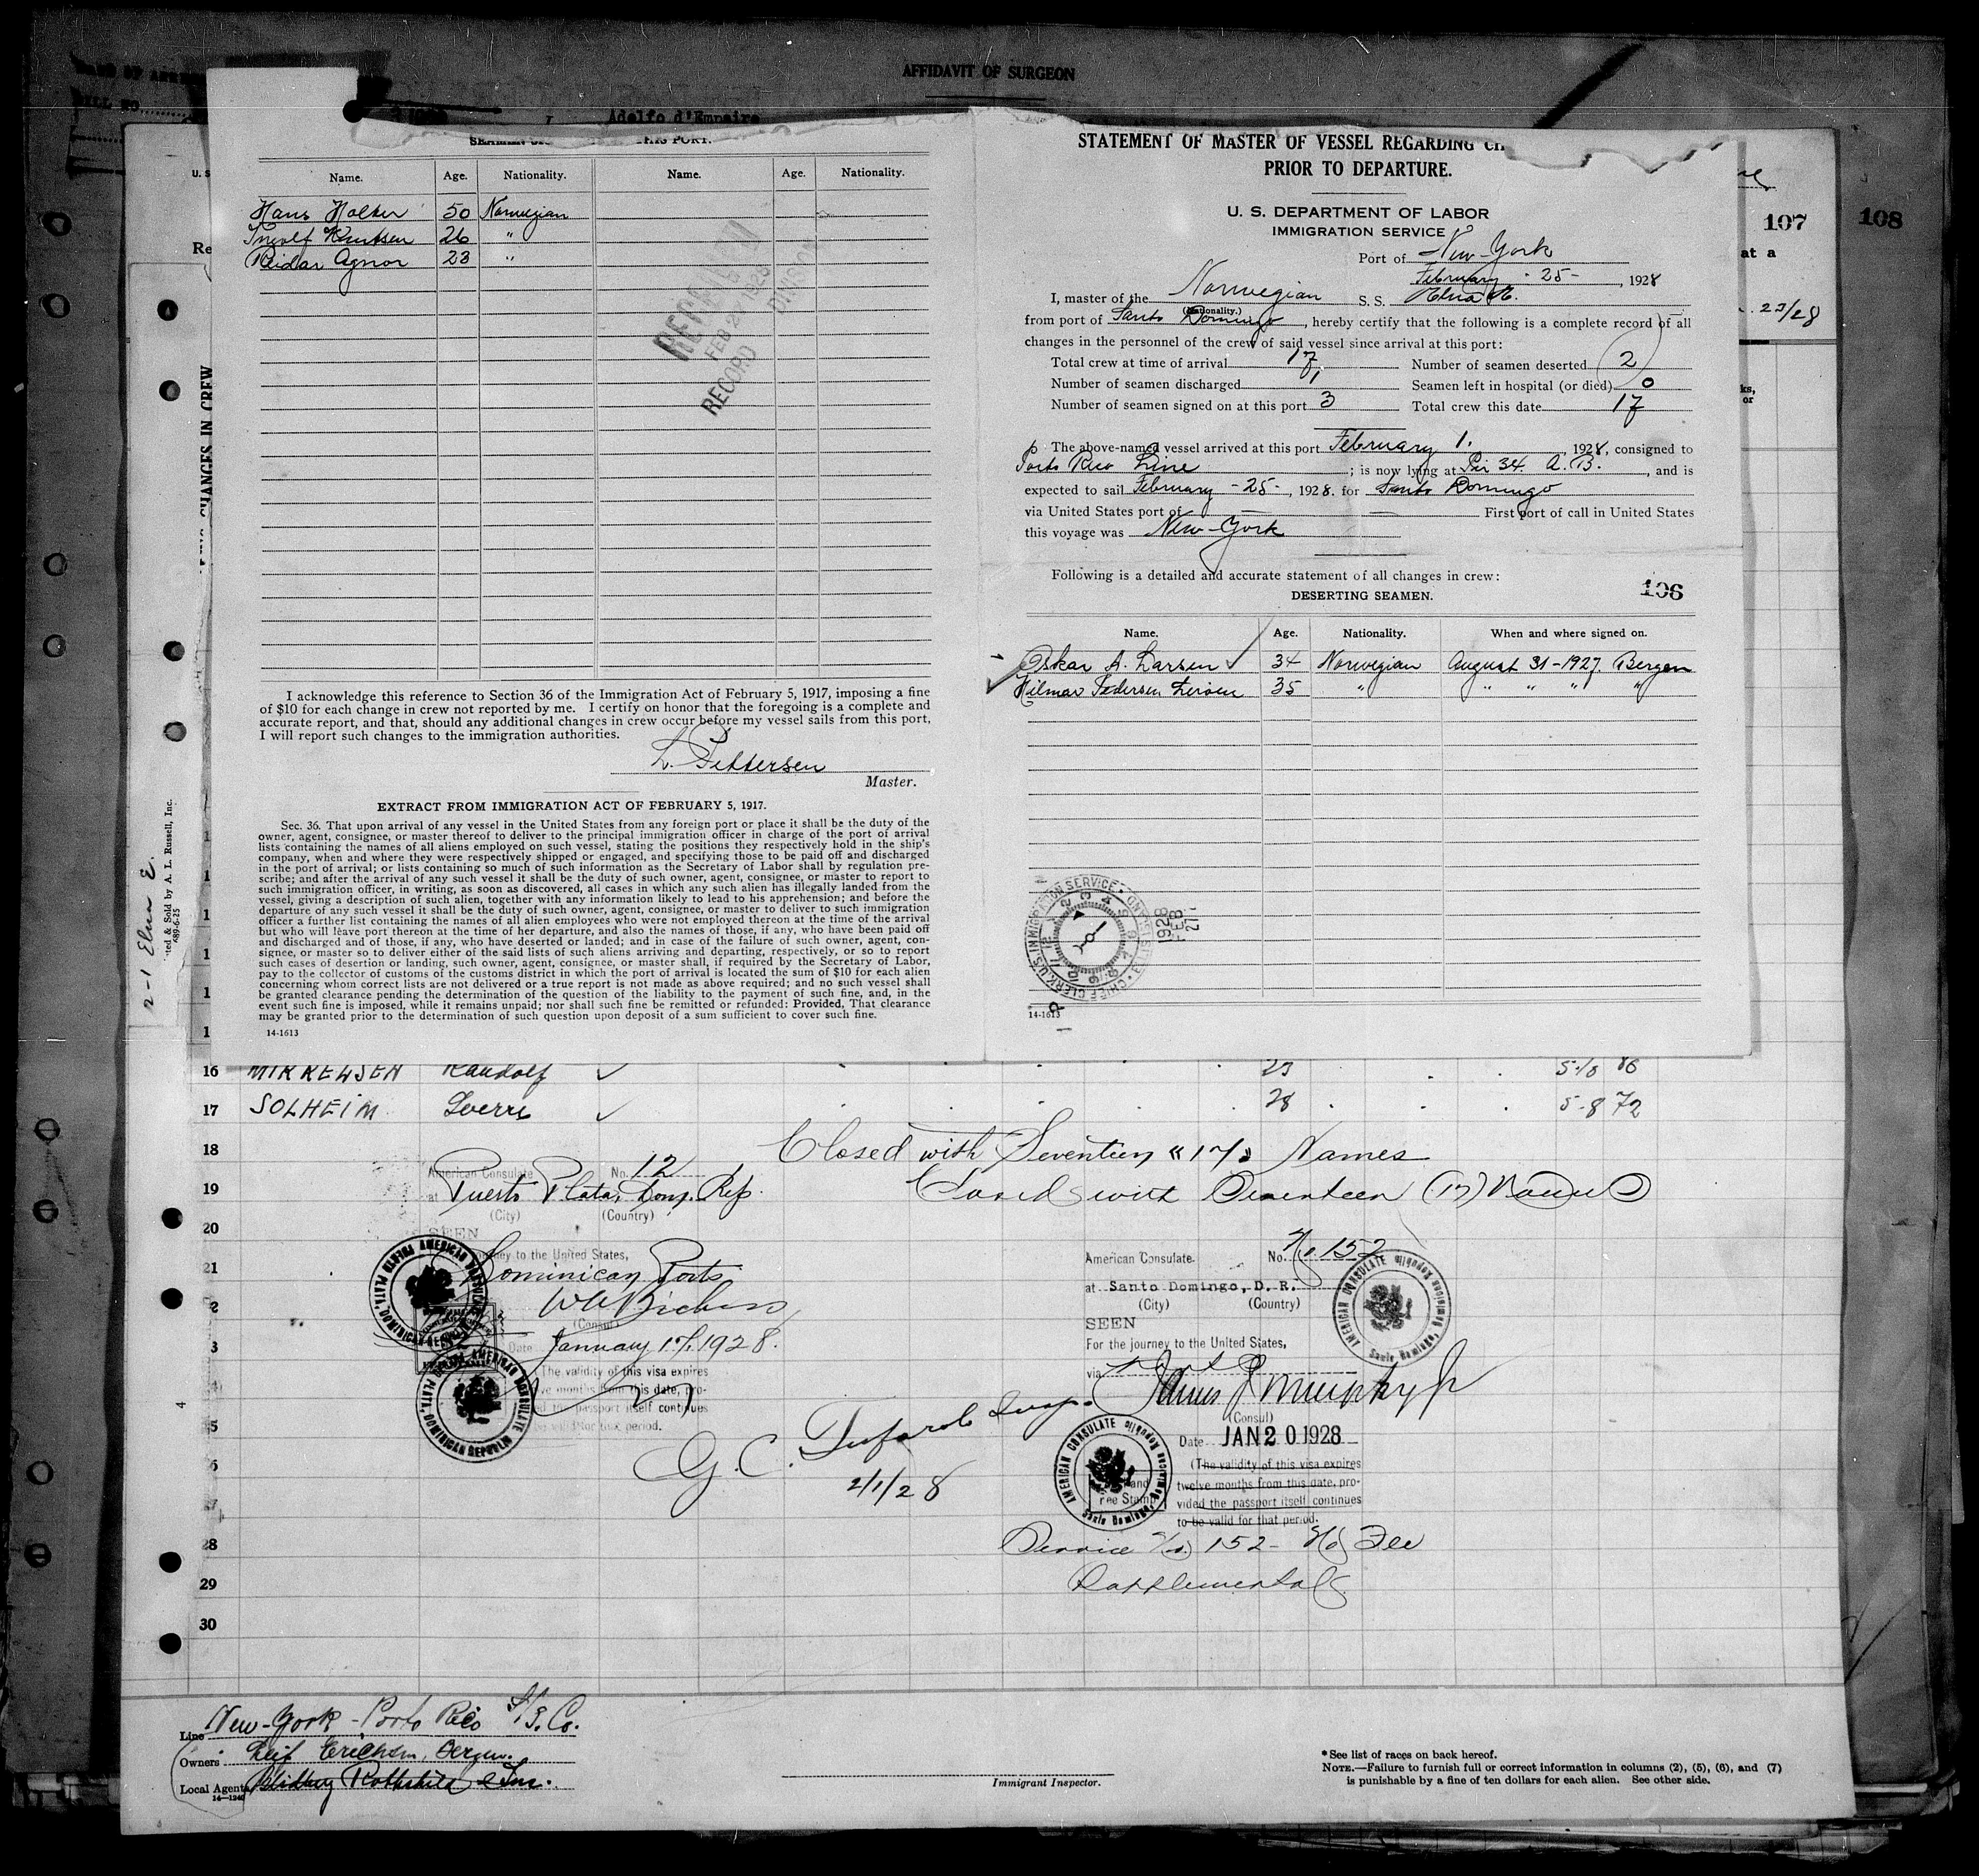 AFFIDAVIT OF SURGEON
Adolfo d'Empaire
THIS PORT.
Name. Age. Nationality. Name. Age. Nationality.
Hans Holter 50 Norwegian
Ingolf Knutsen 26 "
Reidar Agnor 23 "
FEB 2 1928
RECORD DIVISION
I acknowledge this reference to Section 36 of the Immigration Act of February 5, 1917, imposing a fine
of $10 for each change in crew not reported by me. I certify on honor that the foregoing is a complete and
accurate report, and that, should any additional changes in crew occur before my vessel sails from this port,
I will report such changes to the immigration authorities.
L. Pettersen
Master.
EXTRACT FROM IMMIGRATION ACT OF FEBRUARY 5, 1917.
Sec. 36. That upon arrival of any vessel in the United States from any foreign port or place it shall be the duty of the
owner, agent, consignee, or master thereof to deliver to the principal immigration officer in charge of the port of arrival
lists containing the names of all aliens employed on such vessel, stating the positions they respectively hold in the ship's
company, when and where they were respectively shipped or engaged, and specifying those to be paid off and discharged
in the port of arrival; or lists containing so much of such information as the Secretary of Labor shall by regulation pre-
scribe; and after the arrival of any such vessel it shall be the duty of such owner, agent, consignee, or master to report to
such immigration officer, in writing, as soon as discovered, all cases in which any such alien has illegally landed from the
vessel, giving a description of such alien, together with any information likely to lead to his apprehension; and before the
departure of any such vessel it shall be the duty of such owner, agent, consignee, or master to deliver to such immigration
officer a further list containing the names of all alien employees who were not employed thereon at the time of the arrival
but who will leave port thereon at the time of her departure, and also the names of those, if any, who have been paid off
and discharged and of those, if any, who have deserted or landed; and in case of the failure of such owner, agent, con-
signee, or master so to deliver either of the said lists of such aliens arriving and departing, respectively, or so to report
such cases of desertion or landing, such owner, agent, consignee, or master shall, if required by the Secretary of Labor,
pay to the collector of customs of the customs district in which the port of arrival is located the sum of $10 for each alien
concerning whom correct lists are not delivered or a true report is not made as above required; and no such vessel shall
be granted clearance pending the determination of the question of the liability to the payment of such fine, and, in the
event such fine is imposed, while it remains unpaid; nor shall such fine be remitted or refunded: Provided, That clearance
may be granted prior to the determination of such question upon deposit of a sum sufficient to cover such fine.
14-1613
STATEMENT OF MASTER OF VESSEL REGARDING
PRIOR TO DEPARTURE.
U. S. DEPARTMENT OF LABOR
IMMIGRATION SERVICE
Port of New-York
February - 25 - , 1928
I, master of the Norwegian S. S.
(Nationality.)
from port of Santo Domingo, hereby certify that the following is a complete record of all
changes in the personnel of the crew of said vessel since arrival at this port:
Total crew at time of arrival 17 Number of seamen deserted 2
Number of seamen discharged 1 Seamen left in hospital (or died) 0
Number of seamen signed on at this port 3 Total crew this date 17
The above-named vessel arrived at this port February 1. , 1928, consigned to
Porto Rico Line ; is now lying at Pir 34. A. B. , and is
expected to sail February - 25 - , 1928. for Santo Domingo
via United States port of First port of call in United States
this voyage was New-York
Following is a detailed and accurate statement of all changes in crew:
DESERTING SEAMEN.
106
Name. Age. Nationality. When and where signed on.
Oskar A. Larsen 34 Norwegian August 31 - 1927. Bergen
Hilmar Pedersen 35 " " " " "
U.S. IMMIGRATION SERVICE
CHIEF CLERK
1928 FEB 27
14-1613
107
108
at a
23/28
CHANGES IN CREW
2-1 Elna E.
& Sold by A. L. Russell, Inc.
689-6-25
16 MIKKELSEN Randolf 23
17 SOLHEIM Sverre 28 5-8 72
18 Closed with Seventeen «17» Names
19 Closed with Seventeen (17) Names
20
21
28
29
30
American Consulate No. 12
at Puerto Plata, Dom. Rep.
(City) (Country)
SEEN
journey to the United States,
Dominican Ports
(Consul)
Date January 17/1928.
The validity of this visa expires
twelve months from this date, pro-
vided the passport itself continues
to be valid for this period.
AMERICAN CONSULATE PUERTO PLATA, DOMINICAN REPUBLIC
AMERICAN CONSULATE PUERTO PLATA, DOMINICAN REPUBLIC
G. C. Insp.
2/1/28
American Consulate No. No. 152
at Santo Domingo, D. R.
(City) (Country)
SEEN
For the journey to the United States,
via
James J Murphy Jr
(Consul)
Date JAN 20 1928
(The validity of this visa expires
twelve months from this date, pro-
vided the passport itself continues
to be valid for that period.
Fee Stamp
AMERICAN CONSULATE Santo Domingo, Dominican Republic
AMERICAN CONSULATE Santo Domingo, Dominican Republic
Service No. 152 - No Fee
Supplemental
Line New-York - Porto Rico S/S. Co.
Owners Leif Erichsen, Bergen.
Local Agents
14-1240
Immigrant Inspector.
* See list of races on back hereof.
NOTE.—Failure to furnish full or correct information in columns (2), (5), (6), and (7)
is punishable by a fine of ten dollars for each alien. See other side.